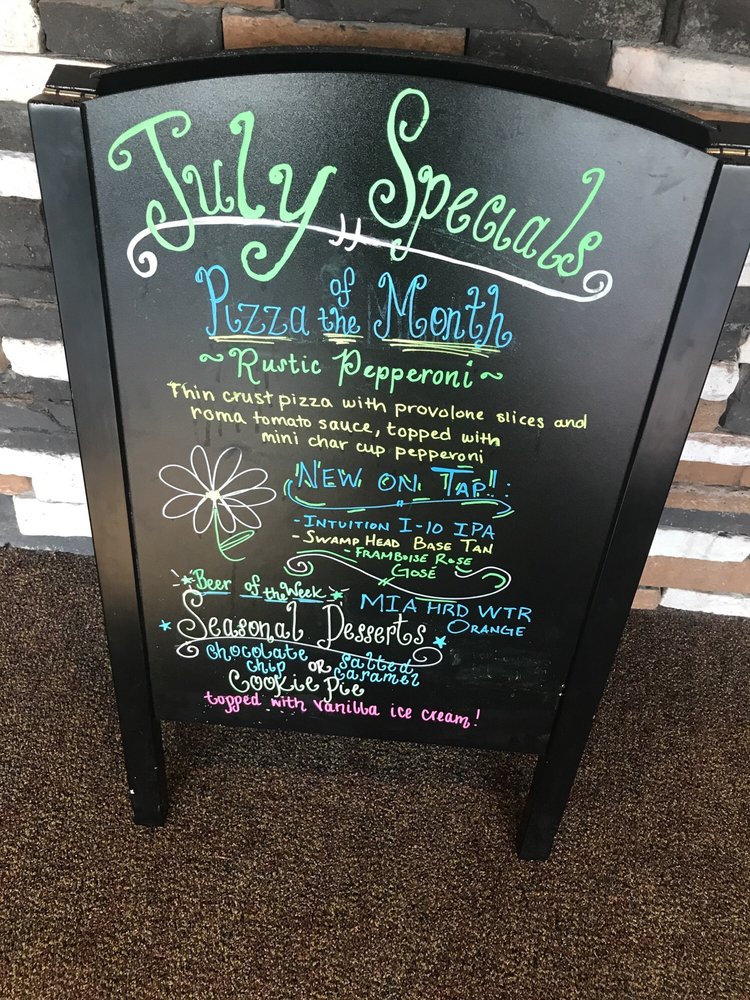 July Specials
Pizza of the Month
~ Rustic Pepperoni ~
Thin crust pizza with provolone slices and
roma tomato sauce, topped with
mini char cup pepperoni
"New on Tap!":
- Intuition I-10 IPA
- Swamp Head Base Tan
- Framboise Rose
Gose
Beer of the Week
MIA HRD WTR
Orange
Seasonal Desserts
Chocolate chip or Salted caramel
Cookie Pie
topped with vanilla ice cream!